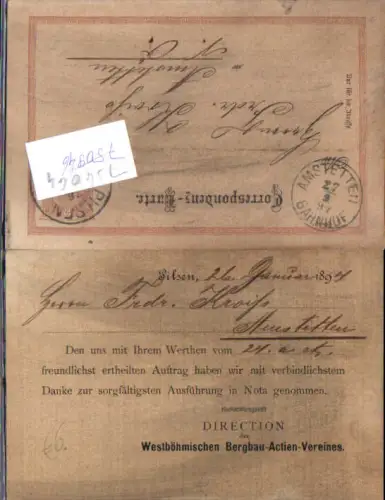 Nur für die Adresse.
Herrn
Frdr. Kroiß
Amstetten
N. Ö.
Correspondenz-Karte.
PILSEN
AMSTETTEN
27
BAHNHOF
Pilsen, 26. Januar 1894
Herrn Frdr. Kroiß
Amstetten
Den uns mit Ihrem Werthen vom 24. a. ct.
freundlichst ertheilten Auftrag haben wir mit verbindlichstem
Danke zur sorgfältigsten Ausführung in Nota genommen.
Hochachtungsvoll
DIRECTION
des
Westböhmischen Bergbau-Actien-Vereines.